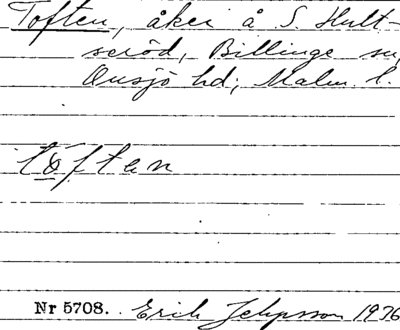 Toften, åker å S. Hult-
seröd, Billinge sn,
Onsjö hd; Malm. l.
toften
Nr 5708. Erik Jeppsson 1936